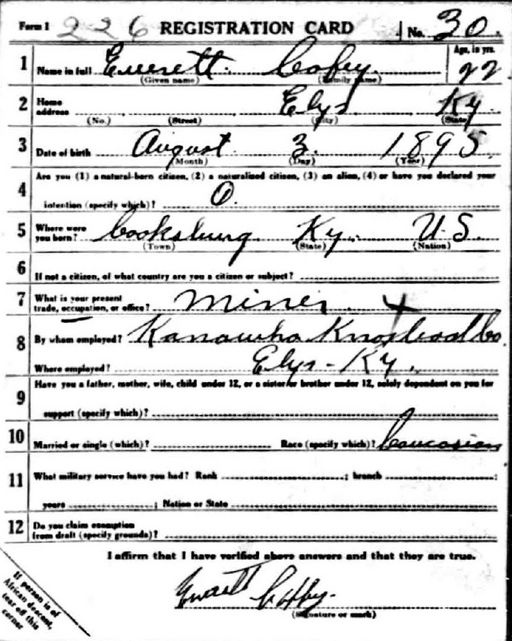 Form 1 226 REGISTRATION CARD No. 30
1 Name in full Everett Cofey Age, in yrs. 22
(Given name) (Family name)
2 Home address Elys Ky
(No.) (Street) (City) (State)
3 Date of birth August 3 1895
(Month) (Day) (Year)
4 Are you (1) a natural-born citizen, (2) a naturalized citizen, (3) an alien, (4) or have you declared your
intention (specify which)? O.
5 Where were you born? Cooksburg Ky. U.S.
(Town) (State) (Nation)
6 If not a citizen, of what country are you a citizen or subject?
7 What is your present trade, occupation, or office? Miner
8 By whom employed? Kanawha Co
Where employed? Elys - Ky.
9 Have you a father, mother, wife, child under 12, or a sister or brother under 12, solely dependent on you for
support (specify which)?
10 Married or single (which)? Race (specify which)? Caucasian
11 What military service have you had? Rank ; branch ;
years ; Nation or State
12 Do you claim exemption from draft (specify grounds)?
I affirm that I have verified above answers and that they are true.
Everett Coffey.
(Signature or mark)
If person is of
African descent,
tear off this
corner